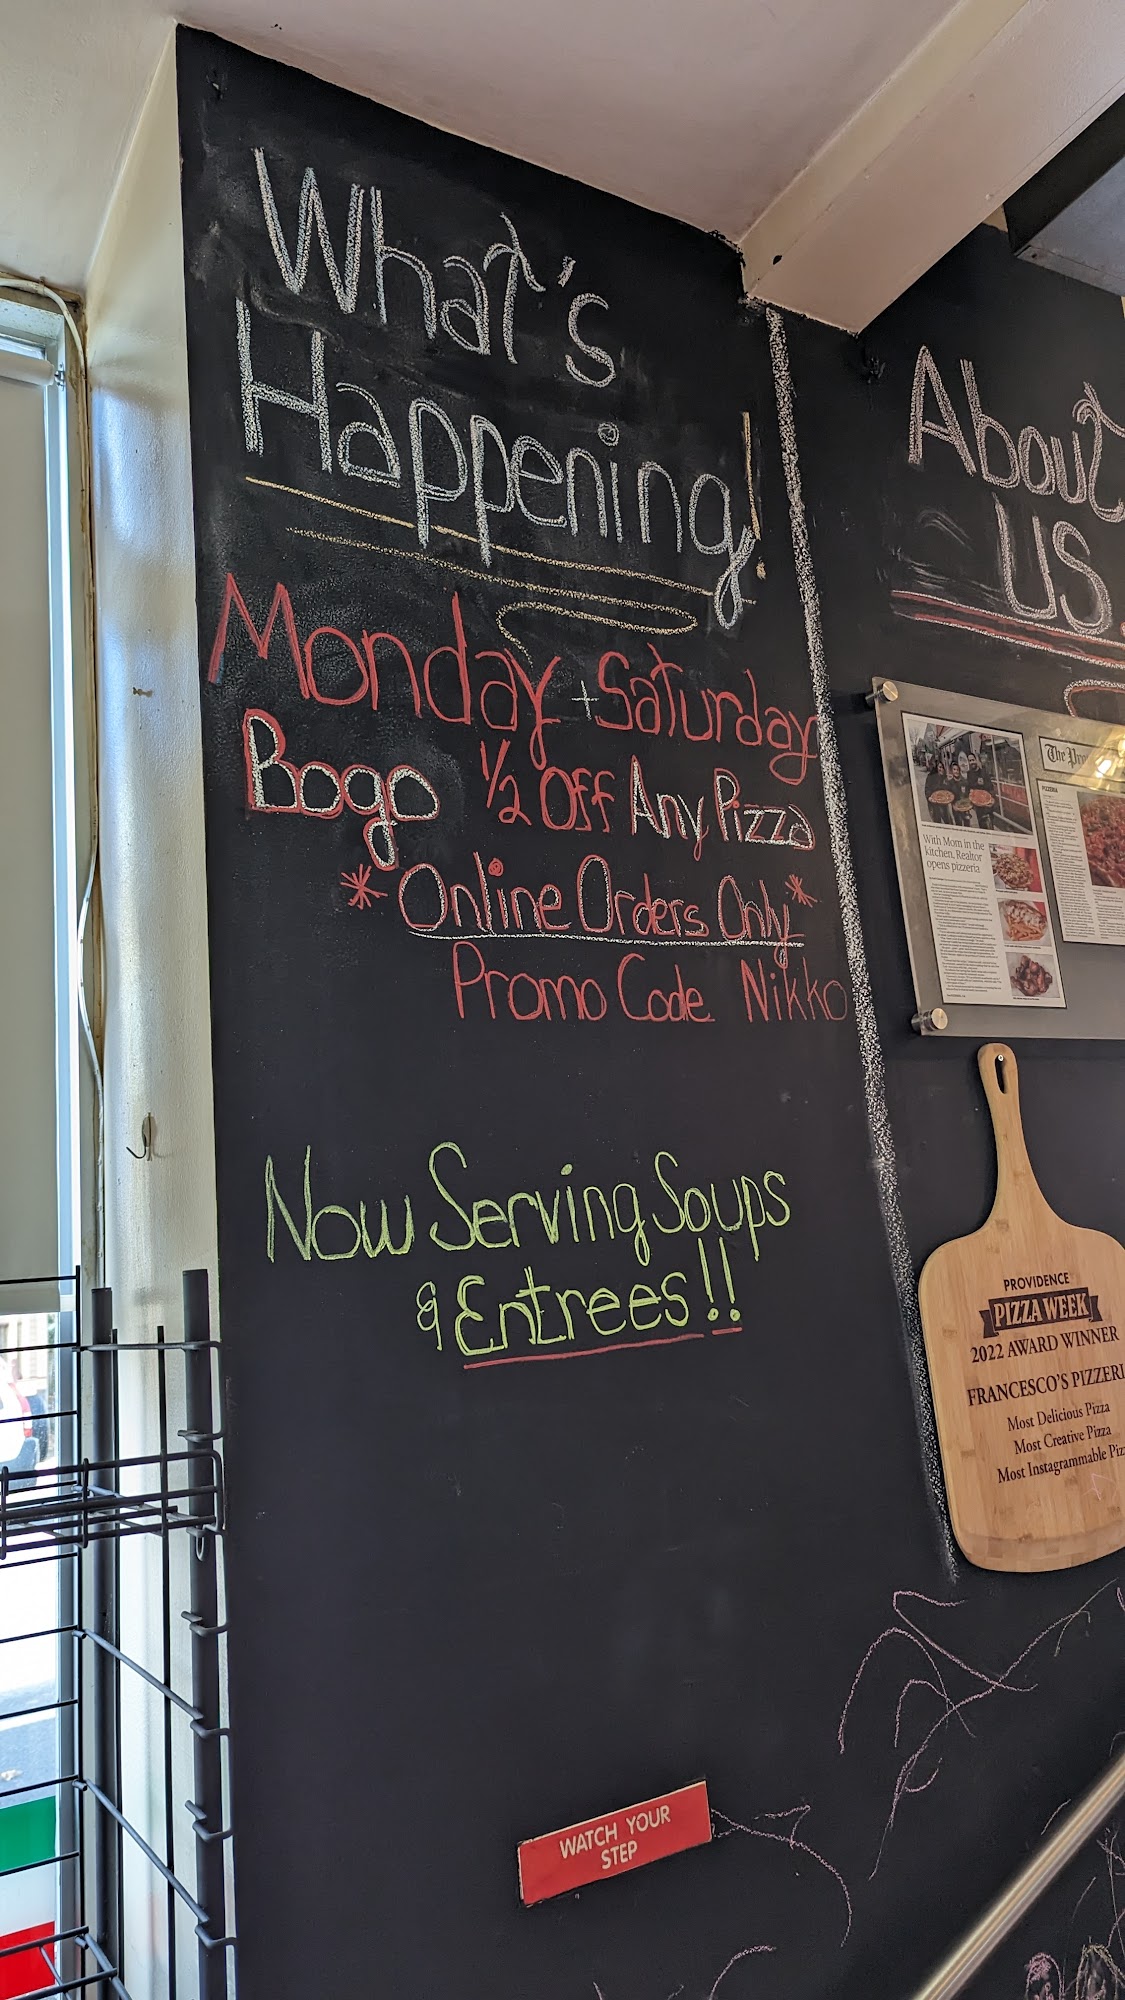 What's
Happening!
Monday + Saturday
Bogo 1/2 Off Any Pizza
*Online Orders Only*
Promo Code Nikko
Now Serving Soups
& Entrees!!
WATCH YOUR
STEP
About
US
With Mom in the
kitchen, Realtor
opens pizzeria
PIZZERIA
PROVIDENCE
PIZZA WEEK
2022 AWARD WINNER
FRANCESCO'S PIZZERI
Most Delicious Pizza
Most Creative Pizza
Most Instagrammable Piz